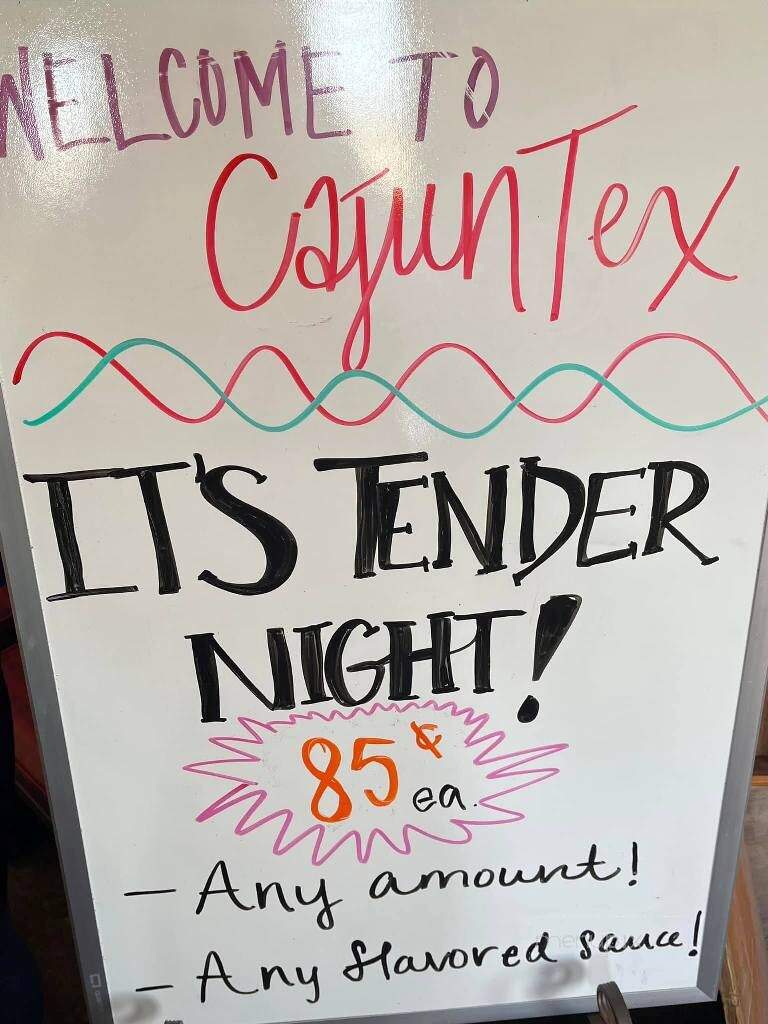 WELCOME TO
CajunTex
IT'S TENDER
NIGHT!
85¢ ea.
- Any amount!
- Any flavored sauce!